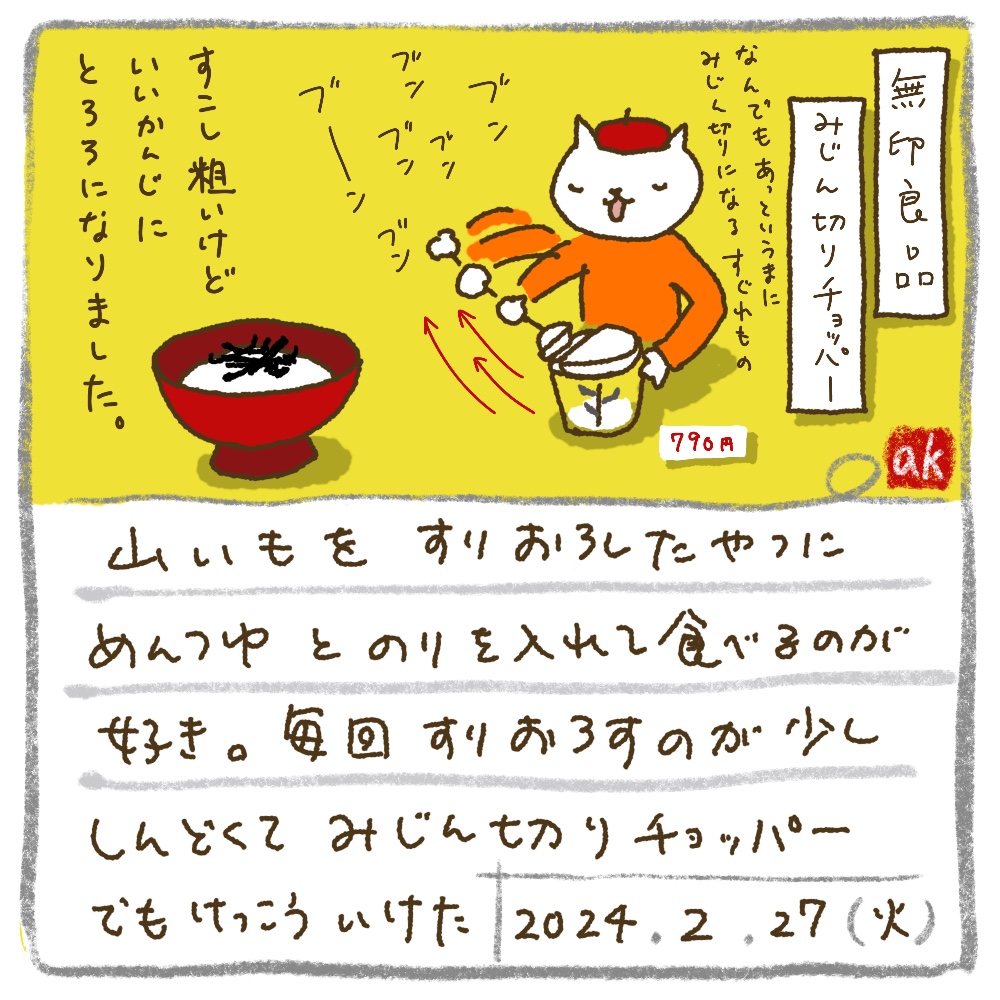 無印良品
みじん切りチョッパー
なんでもあっというまに
みじん切りになるすぐれもの
ブン
ブン
ブン
ブン
ブーン
ブン
すこし粗いけど
いいかんじに
とろろになりました。
790円
ak
山いもを すりおろしたやつに
めんつゆ とのりを入れて食べるのが
好き。毎回すりおろすのが少し
しんどくて みじん切りチョッパー
でもけっこういけた
2024.2.27(火)